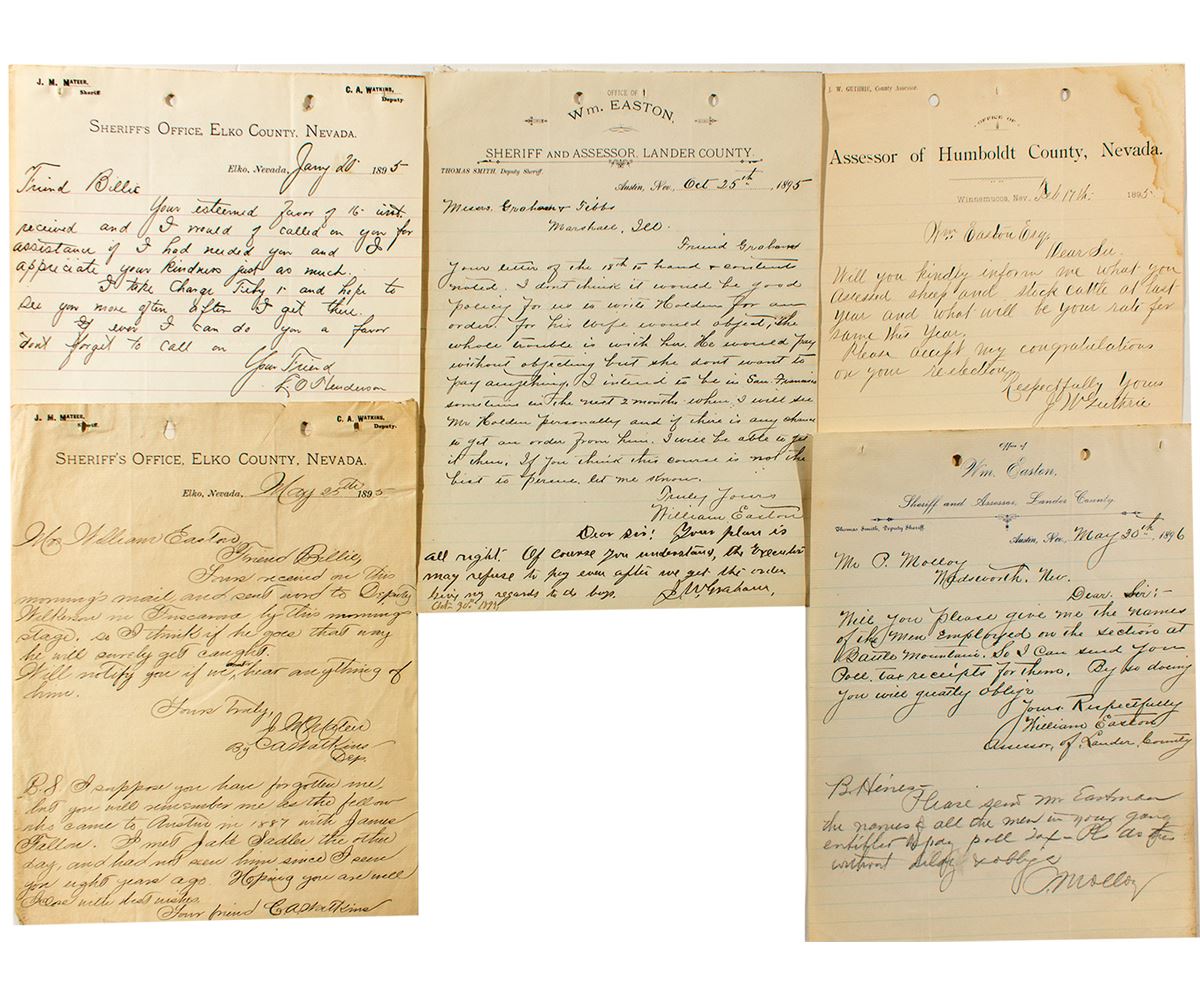 J. M. MATEER,
Sheriff
C. A. WATKINS,
Deputy.
SHERIFF'S OFFICE, ELKO COUNTY, NEVADA.
Elko, Nevada, Jany 20 1895
Friend Billie
Your esteemed favor of 16 inst.
received and I would of called on you for
assistance if I had needed you and I
appreciate your kindness just as much.
I take charge Feby 1st and hope to
see you more often after I get there.
If ever I can do you a favor
dont forget to call on
Your Friend
Henderson
J. M. MATEER,
Sheriff.
C. A. WATKINS,
Deputy.
SHERIFF'S OFFICE, ELKO COUNTY, NEVADA.
Elko, Nevada, May 25th 1895
Mr William Easton,
Friend Billie,
Yours received on this
morning's mail and sent word to Deputy
in Tuscarora by this morning's
stage, so I think if he goes that way
he will surely get caught.
Will notify you if we hear anything of
him.
Yours truly,
By C A Watkins
Dep.
P.S. I suppose you have forgotten me,
but you will remember me as the fellow
who came to Austin in 1887 with James
Fallon. I met Jake Sadler the other
day, and had not seen him since I seen
you eight years ago. Hoping you are well
I close with best wishes.
Your friend C A Watkins
OFFICE OF
WM. EASTON,
SHERIFF AND ASSESSOR, LANDER COUNTY.
THOMAS SMITH, Deputy Sheriff.
Austin, Nev, Oct 25th 1895
Messrs. Graham & Tibbs
Marshall, Ill.
Friend Graham
Your letter of the 18th to hand & contents
noted. I dont think it would be good
policy for us to write Holden for an
order. for his wife would object, the
whole trouble is with her. He would pay
without objecting but she dont want to
pay anything. I intend to be in San Francisco
sometime in the next 2 months when I will see
Mr Holden personally and if there is any chance
to get an order from him. I will be able to get
it then. If you think this course is not the
best to persue, let me know.
Truly Yours
William Easton
Dear sir! Your plan is
all right. Of course you understand, the Executor
may refuse to pay even after we get the order
Give my regards to the boys.
Graham,
Oct. 30th
J. W. GUTHRIE, County Assessor.
OFFICE OF
Assessor of Humboldt County, Nevada.
Winnemucca, Nev. Feb 17th 1895
Wm Easton Esq.
Dear Sir.
Will you kindly inform me what you
assessed sheep and stock cattle at last
year and what will be your rate for
same this year.
Please accept my congratulations
on your reelection
Respectfully Yours
J W Guthrie
Office of
Wm. Easton,
Sheriff and Assessor, Lander County.
Thomas Smith, Deputy Sheriff.
Austin, Nev, May 20th, 1896
Mr P. Molloy
Wadsworth, Nev.
Dear Sir:-
Will you please give me the names
of the Men Employed on the section at
Battle Mountain. So I can send you
Poll tax receipts for them. By so doing
you will greatly oblige
Yours Respectfully
William Easton
Assessor, of Lander, County
B. Hines
Please send Mr Eastman
the names of all the men in your gang
entitled to pay poll tax - Pls do this
without delay & oblige
P Molloy